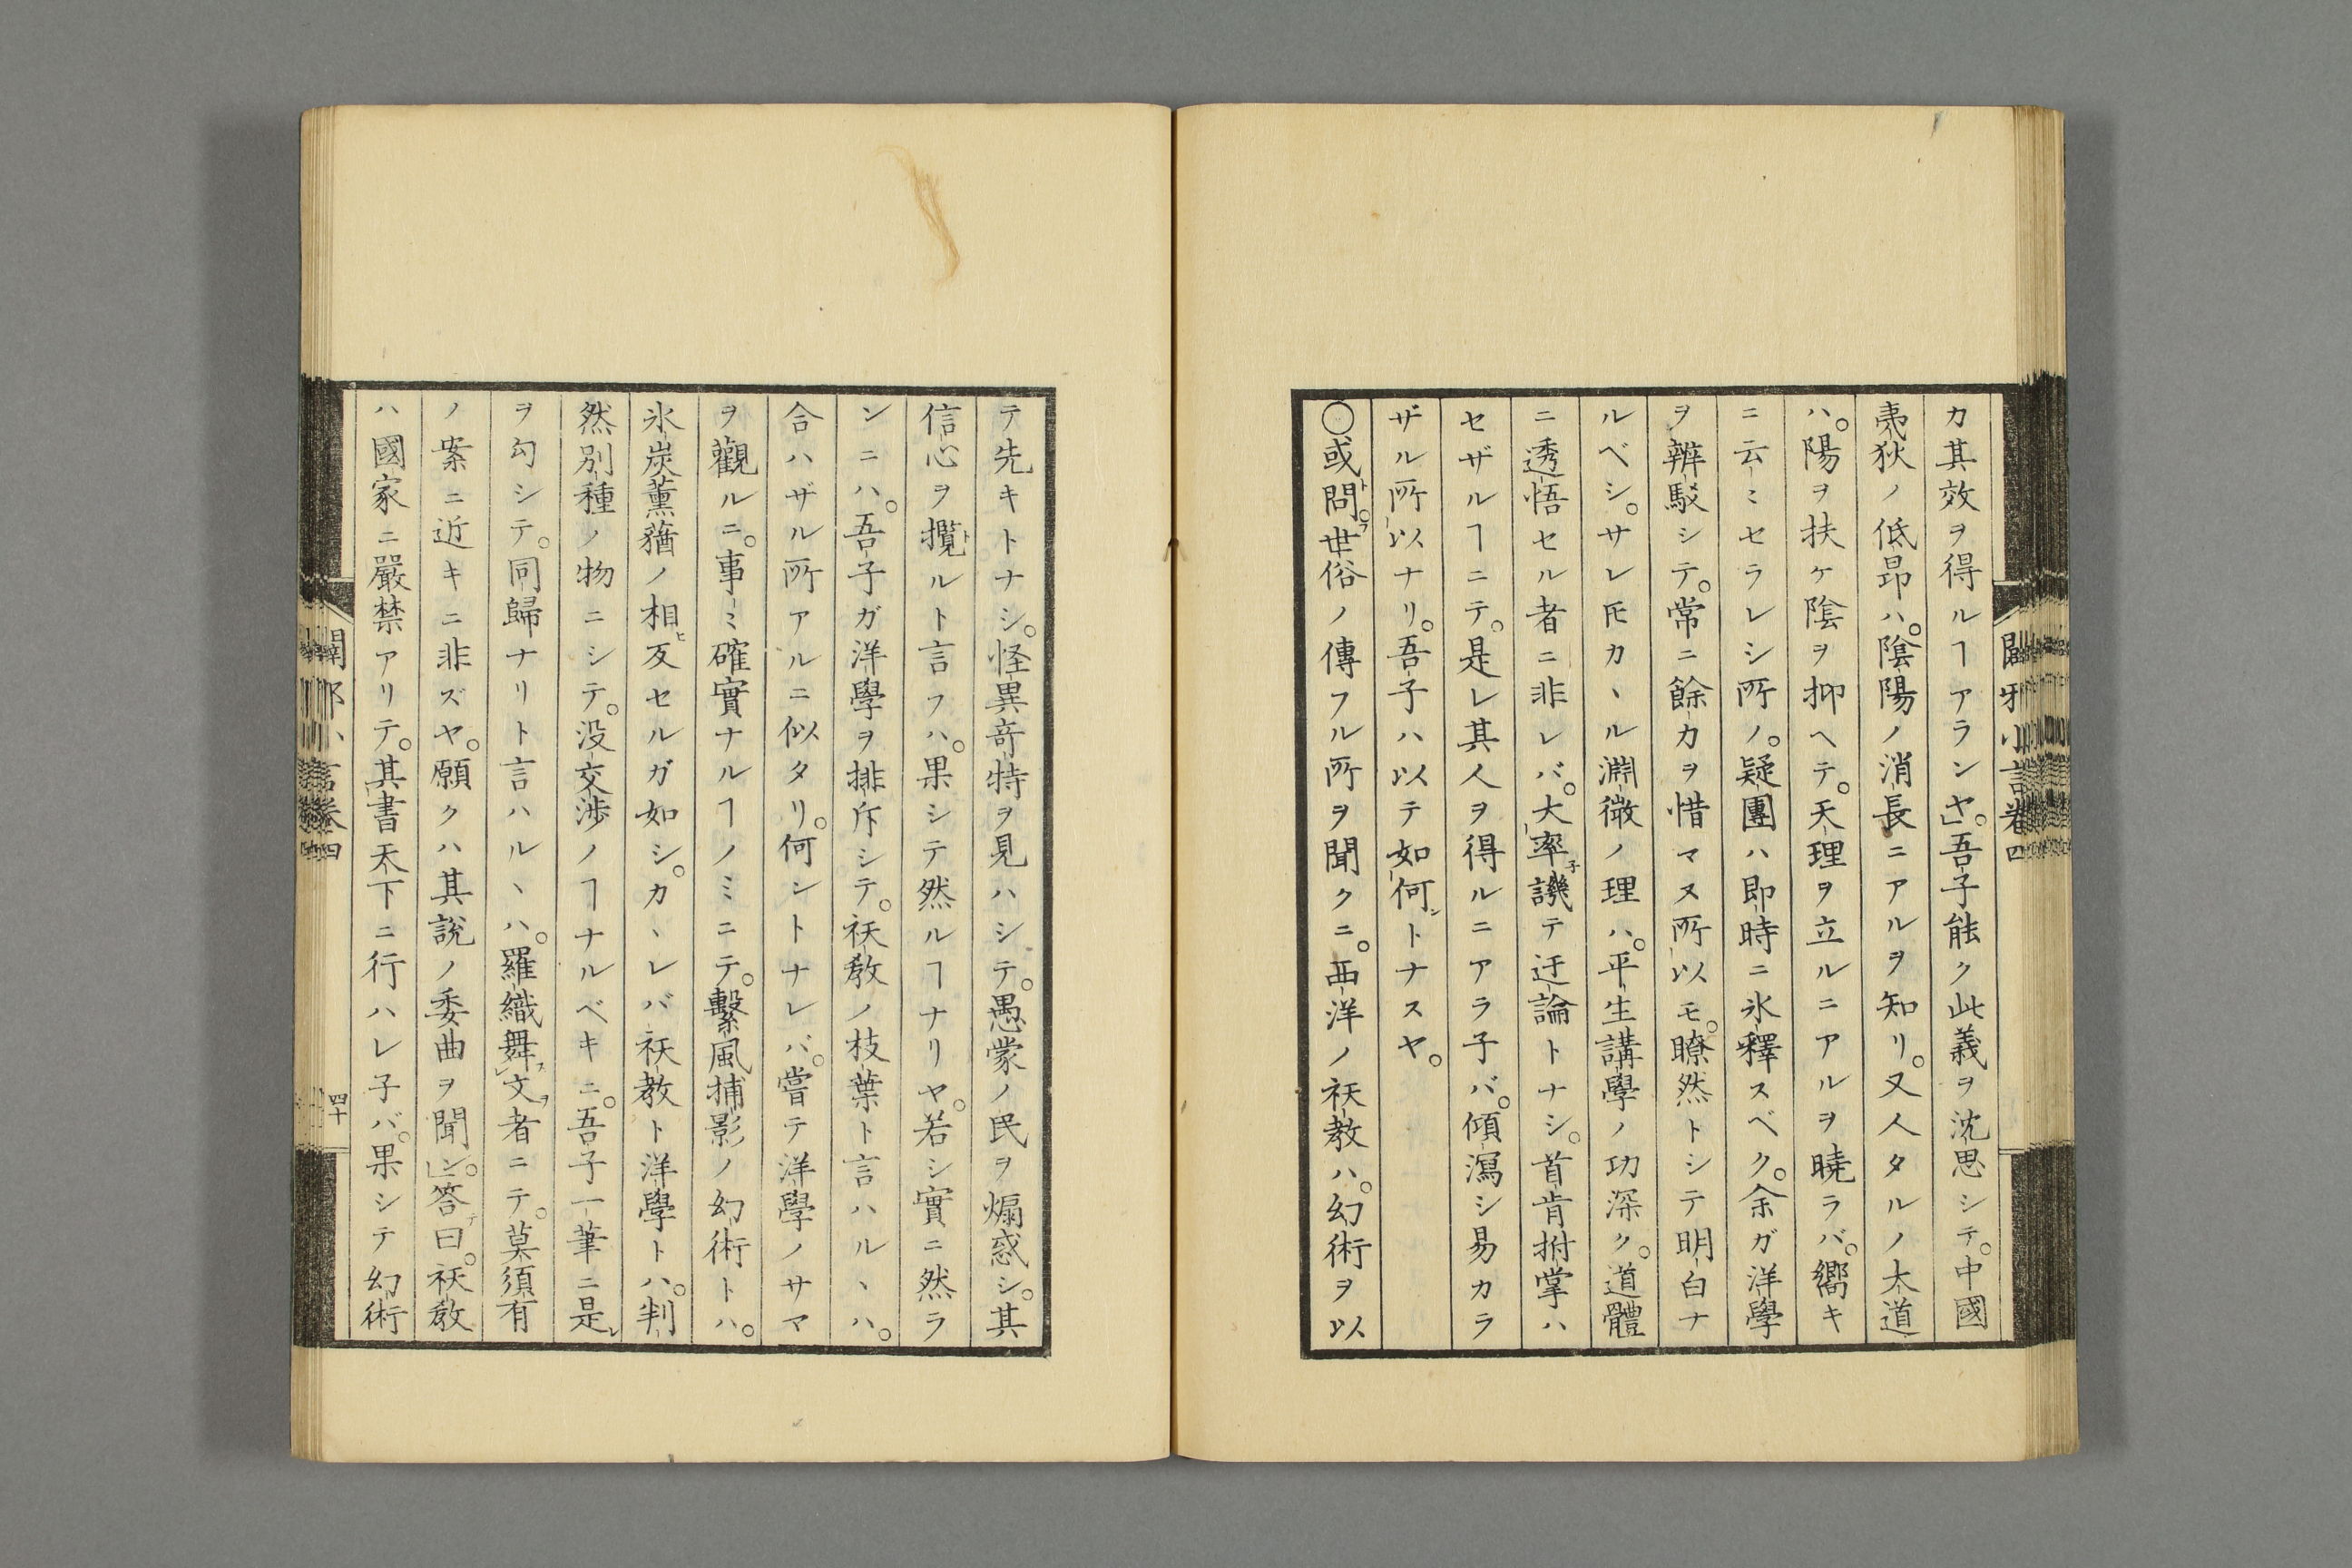 カ其效ヲ得ルヿアランヤ」。吾子能ク此義ヲ沈思シテ。中國
夷狄ノ低昻ハ。陰陽ノ消長ニアルヲ知リ。又人タルノ大道
ハ。陽ヲ扶ケ陰ヲ抑ヘテ。天理ヲ立ルニアルヲ曉ラバ。嚮キ
ニ云ミセラレシ所ノ。疑團ハ即時ニ氷釋スベク。余ガ洋學
ヲ辨駁シテ。常ニ餘カヲ惜マヌ所以モ。瞭然トシテ明白ナ
ルベシ。サレ𪜈カヽル淵微ノ理ハ。平生講學ノ功深ク。道體
ニ透悟セル者ニ非レバ。大率子譏テ迂論トナシ。首肯拊掌ハ
セザルヿニテ。是レ其人ヲ得ルニアラ子バ。傾瀉シ易カラ
ザル所以ナリ。吾子ハ以テ如何ントナスヤ。
○或問ト。フ世俗ノ傳フル所ヲ聞クニ。西洋ノ祅教ハ。幻術ヲ以
テ先キトナシ。怪異竒特ヲ見ハシテ。愚蒙ノ民ヲ煽惑シ。其
信心ヲ攬トルト言フハ。果シテ然ルヿナリヤ。若シ實ニ然ラ
ンニハ。吾子ガ洋學ヲ排斥シテ。祅教ノ枝葉ト言ハルヽハ。
合ハザル所アルニ似タリ。何ントナレバ。嘗テ洋學ノサマ
ヲ觀ルニ。事ミ確實ナルヿノミニテ。繫風捕影ノ幻術トハ。
氷炭薰蕕ノ相ヒ反セルガ如シ。カヽレバ祅教ト洋學トハ。判
然別種ノ物ニシテ。没交渉ノヿナルベキニ。吾子一筆ニ是レ
ヲ勾シテ。同歸ナリト言ハルヽハ。羅織舞スレ文ヲ者ニテ。莫須有
ノ案ニ近キニ非ズヤ。願クハ其說ノ委曲ヲ聞ン」。答テ曰。祅教
ハ國家ニ嚴禁アリテ。其書天下ニ行ハレ子バ。果シテ幻術
闢邪小言卷四
四十
闢邪小言卷四